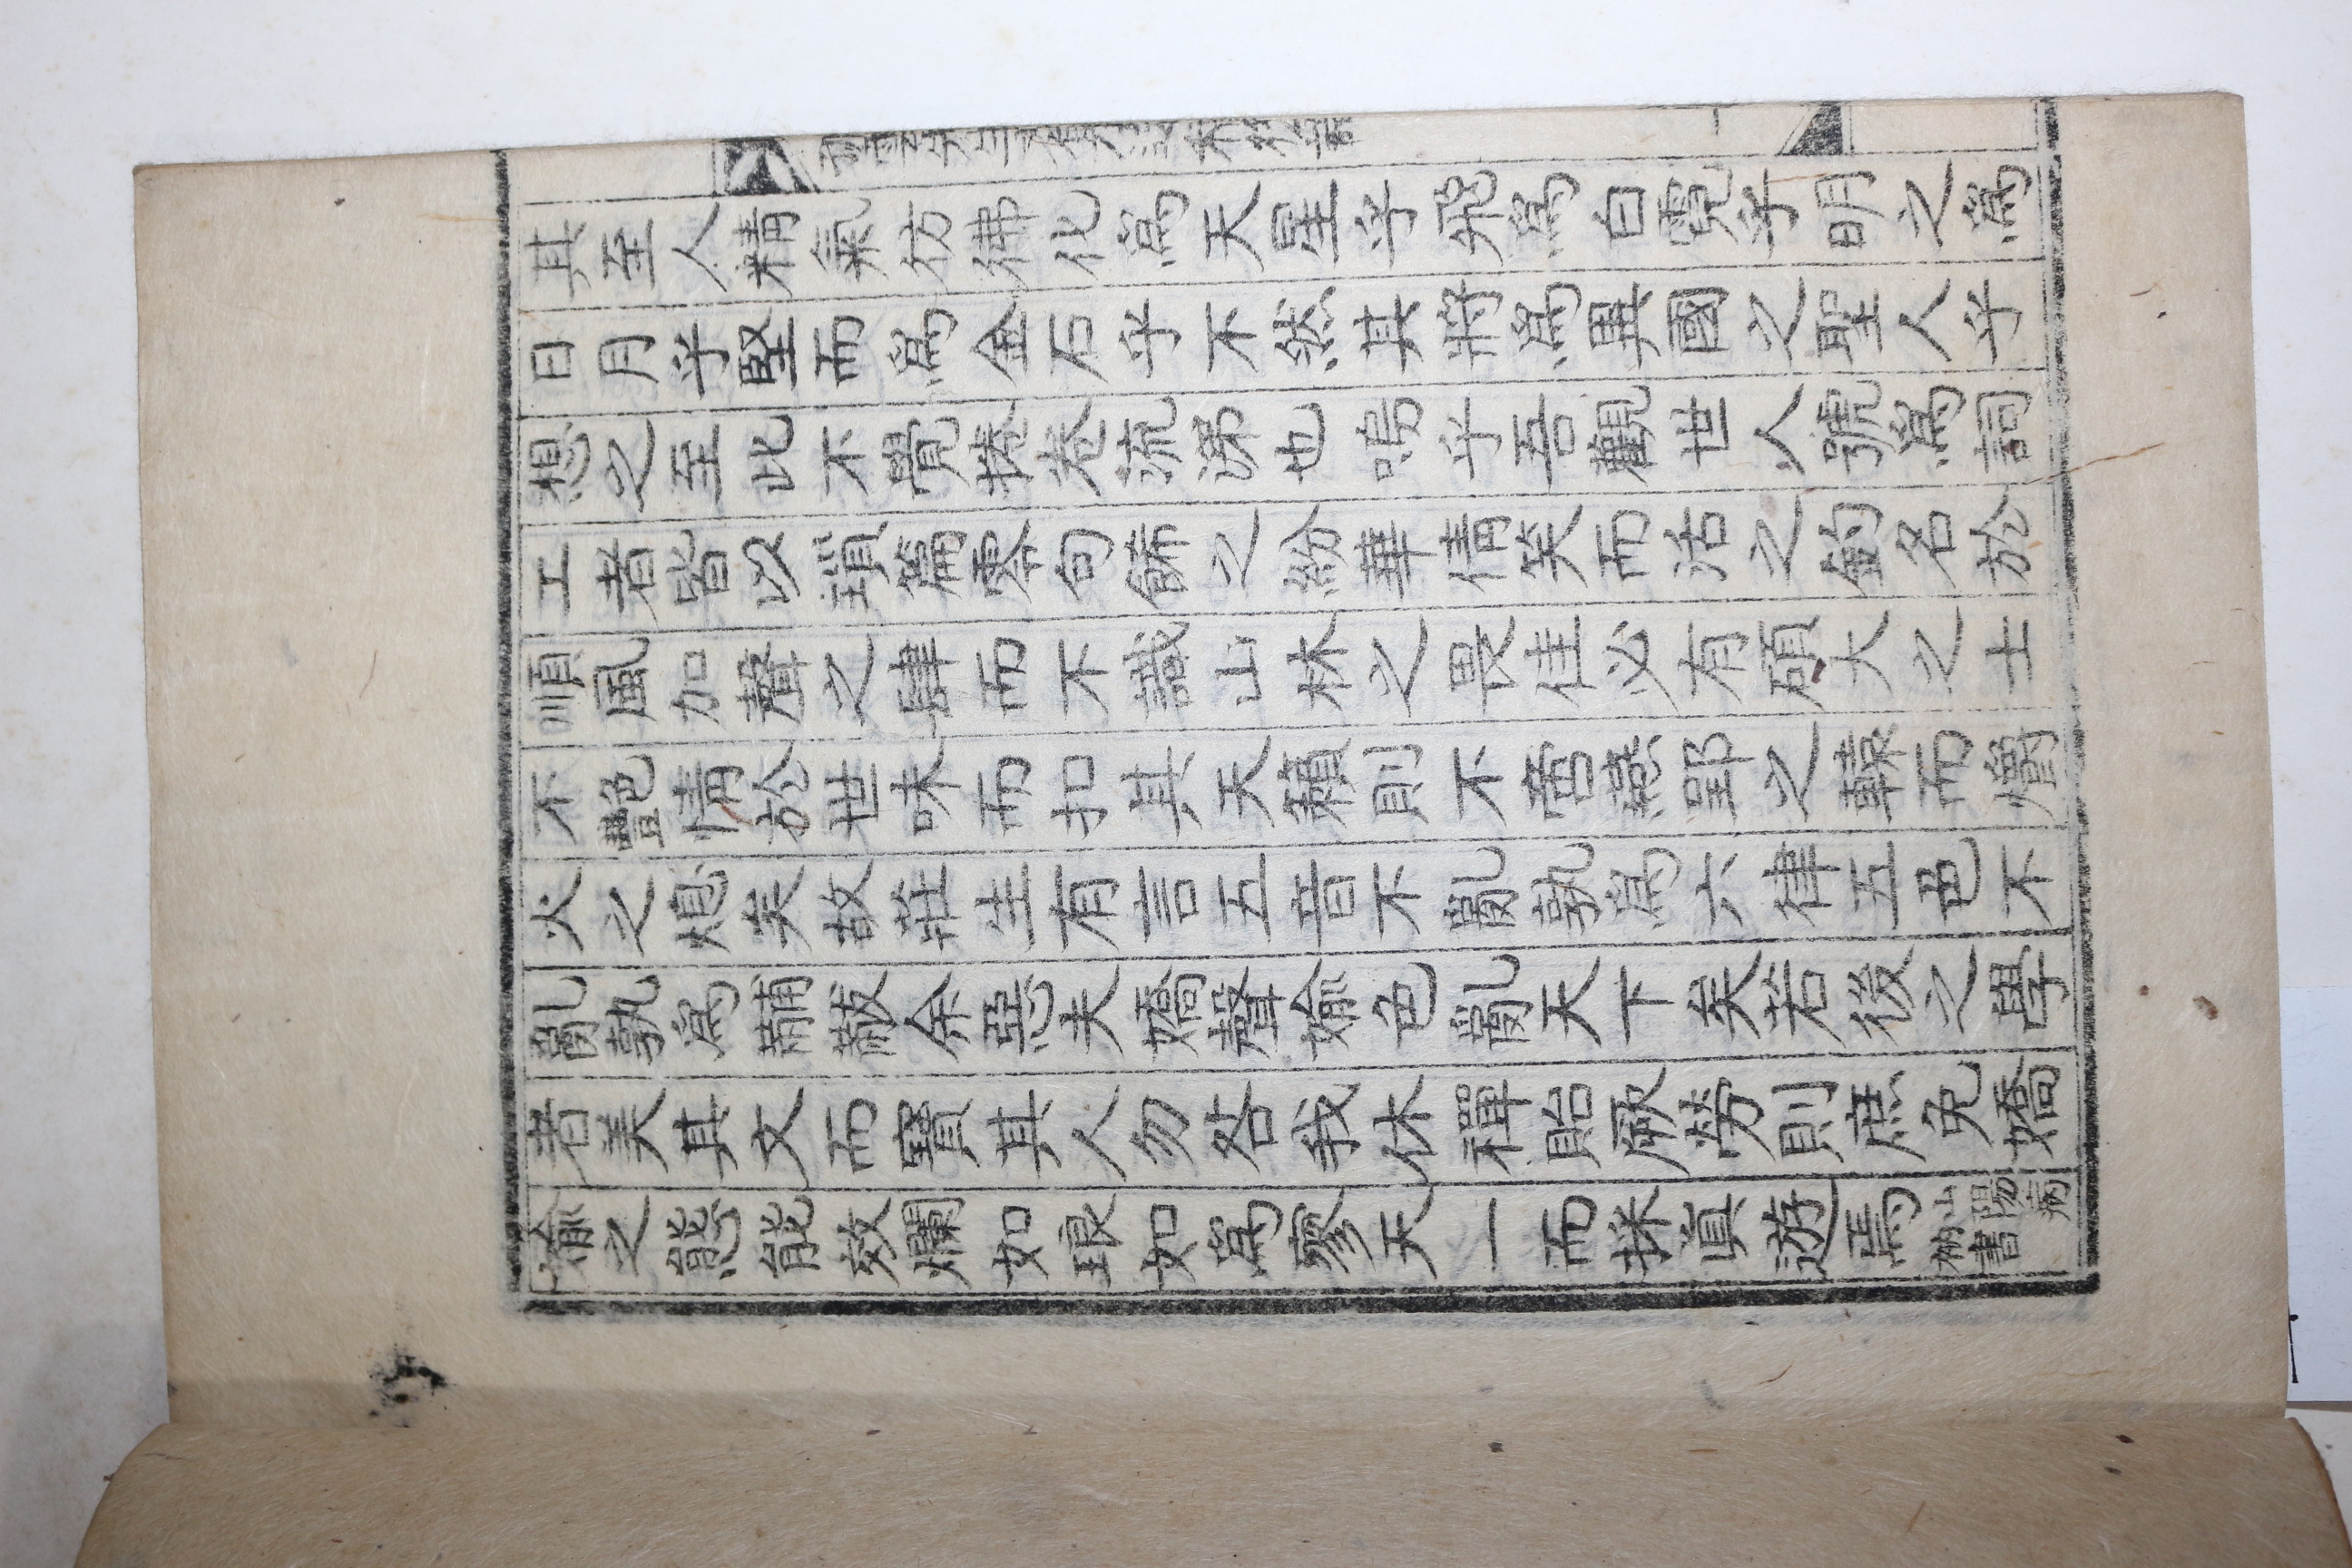 其至人精氣彷彿化爲天星乎飛爲白霓乎明之爲
日月乎堅而爲金石乎不然其將爲異國之聖人乎
想之至此不覺捲卷流涕也嗚乎吾觀世人號爲詞
工者皆以瑣篇零句餙之紛華倩笑而活之釣名於
順風加聲之肆而不識山林之畏佳必有碩大之士
不艶情於世味而扣其天籟則不啻燕郢之轅而爝
火之熄矣故莊生有言五音不亂孰爲六律五色不
亂孰爲黼黻余惡夫嬌聲媮色亂天下矣若後之學
者美其文而寶其人勿咎我休禪貽厥勞則庶免嬌
媮之態能效爛如琅如爲寥天一而採眞遊焉
山陽病
衲書